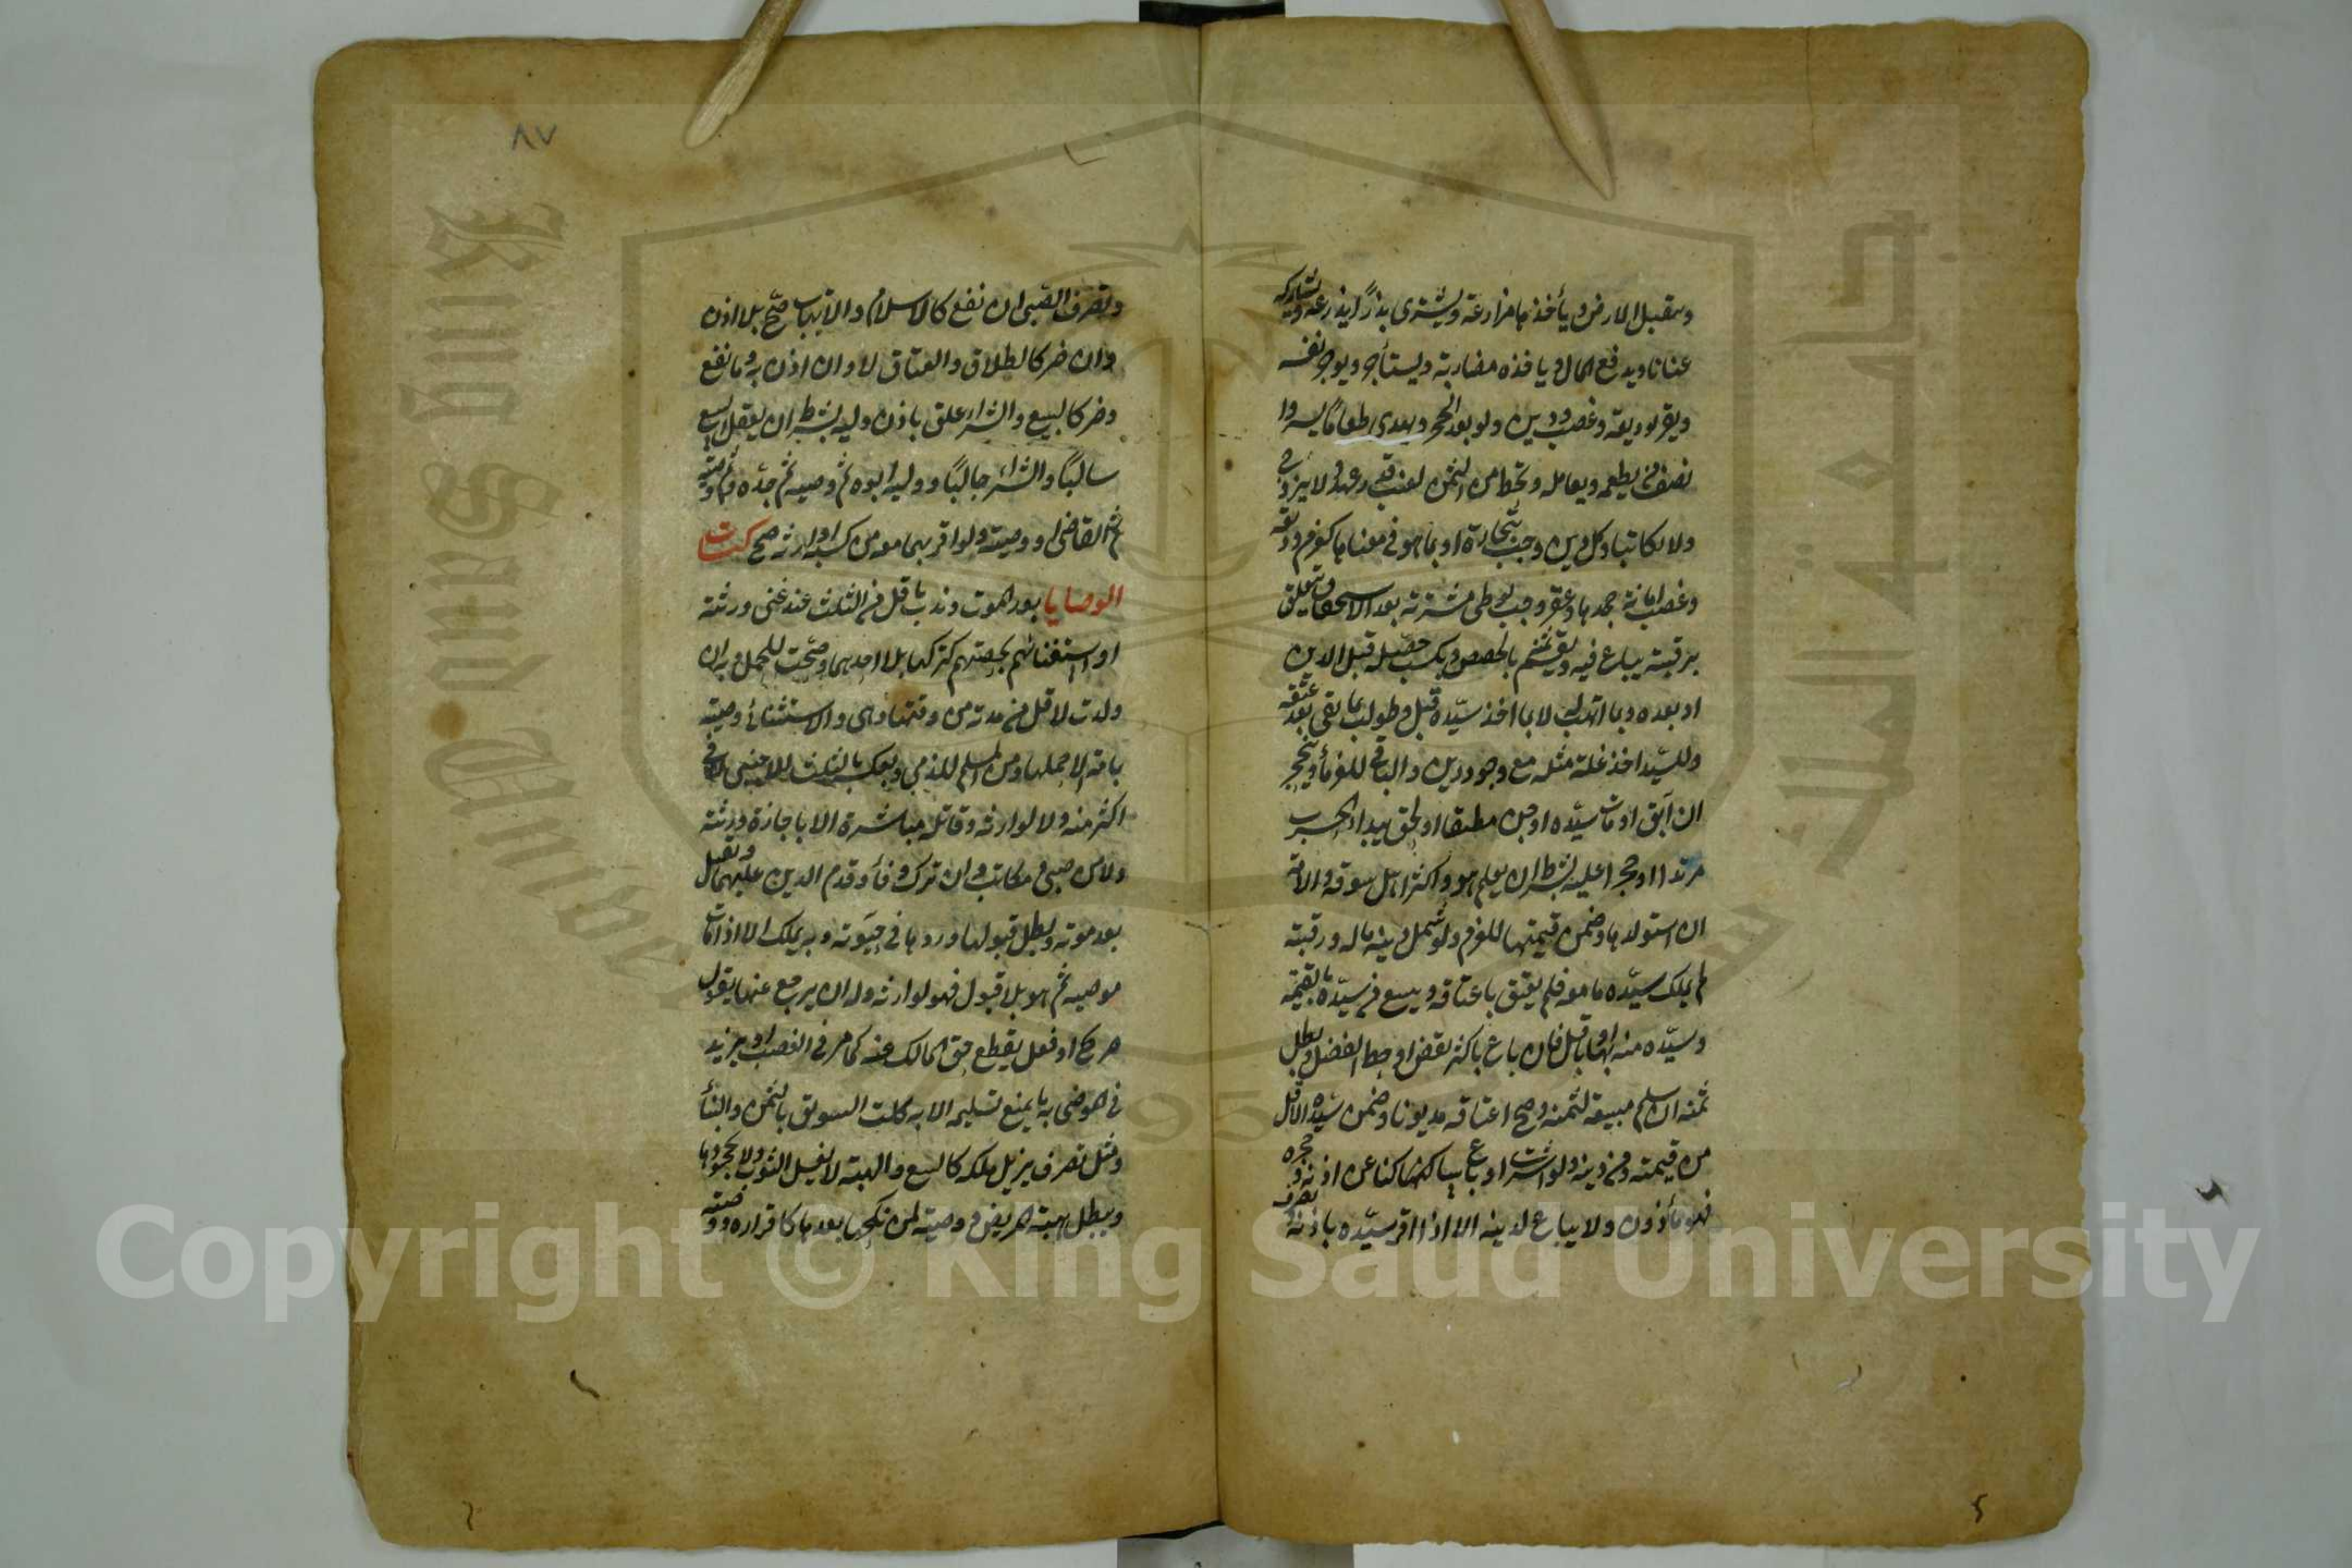 ويتقبل الارض ويأخذها مزارعة ويشترى بذرًا يزرعه ويشاركه
عنانا ويدفع المال وياخذه مضاربة ويستأجر ويوجر نفسه
ويقر بوديعة وغصب ودين ولو بعد الحجر ويهدى طعامًا يسيرا
ويضيف من يطعمه ويعامله ويحط من الثمن لعيب قدر عهد ولا يتزوج
ولا يكاتب وكل دين وجب بتجارة او بما هو في معناها كغرم وديعة
وغصب وامانة جحدها وعقر وجب بوطى مشترية بعد الاستحقاق يتعلق
برقبته يباع فيه ويقسم ثمنه بالحصص وبكسب حصل قبل الدين
او بعده وبما اتهب لا بما اخذ سيّده قبل وطولب بما بقى بعد عتقه
وللسيّد اخذ غلة مثله مع وجود دين والباقي للغرمأ وينحجر
ان آبق او مات سيّده او جن مطبقا او لحق بدار الحرب
مرتدا او حجر عليه بشرط ان يعلم هو واكثر اهل سوقه والامة
ان استولدها وضمن قيمتها للغرم ولو شمل دينه ماله ورقبته
لم يملك سيّده ما معه فلم يعتق باعتاقه ويبيع من سيّده بالقيمة
وسيّده منه بها او باقل فان باع باكثر نقض او حط الفضل وبطل
ثمنه ان سلم مبيعه لثمنه وصح اعتاقه مديونا وضمن سيّده الاقل
من قيمته ومن دينه ولو اشترى او باع ساكتا عن اذنه وحجره
فهو مأذون ولا يباع لدينه الا اذا اقر سيّده باذنه
٨٧
وتصرف الصبى ان نفع كالاسلام والاتهاب صحّ بلا اذن
وان ضر كالطلاق والعتاق لا وان اذن به وما نفع
وضر كالبيع والشراء علق باذن وليه بشرط ان يعقل البيع
سالبًا والشراء جالبًا ووليه ابوه ثم وصيه ثم جدّه ثم وصيه
ثم القاضى او وصيه ولو اقر بما معه من كسبه او ارثه صح كتاب
الوصايا بعد الموت وندب باقل من الثلث عند غنى ورثته
او استغنائهم بحصتهم كتركها بلا احدهما وصحّت للحمل وبه ان
ولدت لاقل من مدته من وقتها وهى والاستثناء وصيته
بامة الا حملها ومن المسلم للذمي وبعكسه وبالثلث للاجنبي لا في
اكثر منه ولا لوارثه وقاتله مباشرة الا باجازة ورثته
ولا من صبى ومكاتب وان ترك وفأ وقدم الدين عليها وتقبل
بعد موته وبطل قبولها وردها في حيوته وبه يملك الا اذا مات
موصيه ثم هو بلا قبول فهو لوارثه وله ان يرجع عنها بقول
صريح او فعل يقطع حق المالك عنه كما مر في الغصب او يزيد
في الموصى به ما يمنع تسليمه الا به كلت السويق بالسمن والبنأ
ومثل تصرف يزيل ملكه كالبيع والهبة لا بغسل الثوب ولا بجحودها
وبطل هبة المريض ووصيته لمن نكحها بعدها كاقراره ووصيته